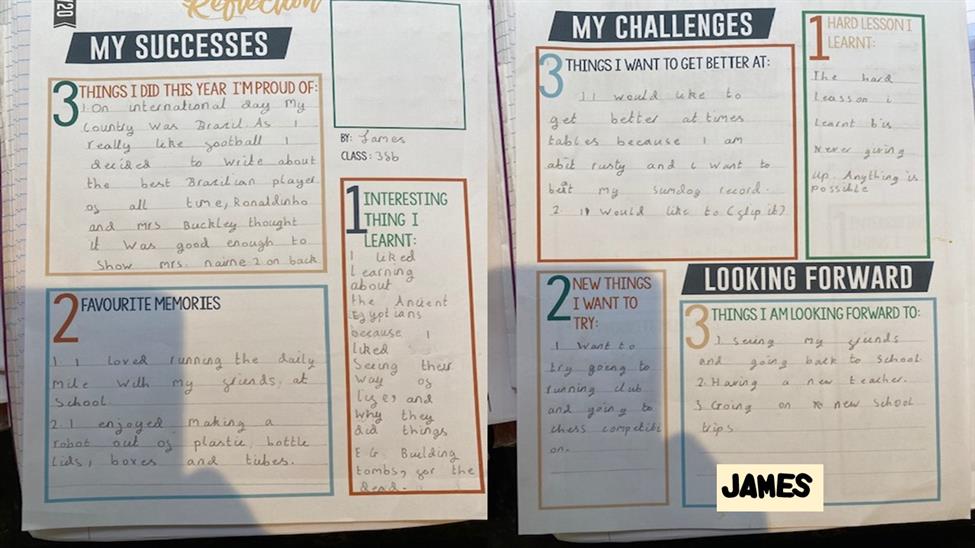 2020
Reflection
MY SUCCESSES
3 THINGS I DID THIS YEAR I'M PROUD OF:
1. On international day My
Country Was Brazil. As I
really like football I
decided to write about
the best Brazilian player
of all time, Ronaldinho
and Mrs Buckley thought
it was good enough to
Show Mrs. nairne 2 on back
2 FAVOURITE MEMORIES
1. I loved running the daily
Mile With my friends, at
School
2. I enjoyed Making a
robot out of plastic bottle
lids, boxes and tubes.
BY: James
CLASS:
1 INTERESTING
THING I
LEARNT:
I liked
Learning
about
the Ancient
Egyptians
because I
liked
Seeing their
Way of
life, and
Why they
did things
E.G. Building
tombs, for the
dead.
MY CHALLENGES
3 THINGS I WANT TO GET BETTER AT:
1 I would like to
get better at times
tables because I am
abit rusty and i want to
beat my Sumdog record.
2. I would like to (flip it)
1 HARD LESSON I
LEARNT:
The hard
leasson i
Learnt bis
Never giving
up. Anything is
possible
2 NEW THINGS
I WANT TO
TRY:
I Want to
try going to
running club
and going to
chess competiti
on.
LOOKING FORWARD
3 THINGS I AM LOOKING FORWARD TO:
1. Seeing my friends
and going back to School
2. Having a new teacher.
3. Going on new School
trips
JAMES